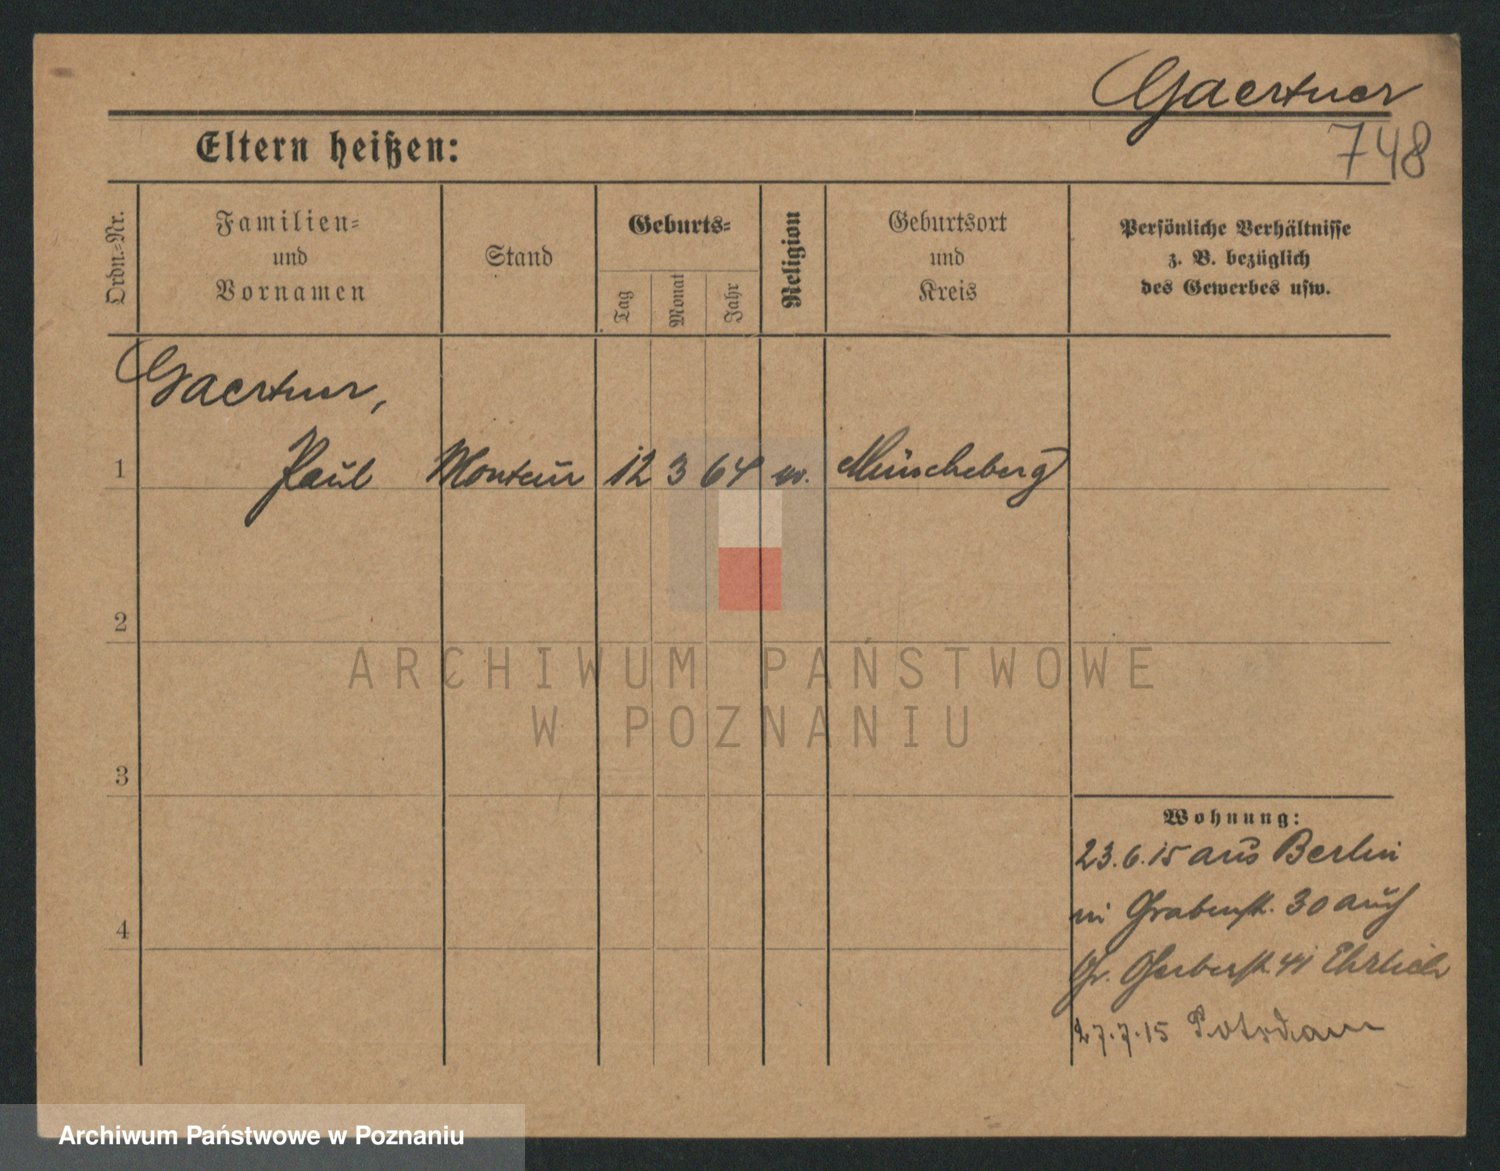 Gaertner
748
Eltern heißen:
Ordn.=Nr.
Familien=
und
Vornamen
Stand
Geburts=
Tag
Monat
Jahr
Religion
Geburtsort
und
Kreis
Persönliche Verhältnisse
z. B. bezüglich
des Gewerbes usw.
Gaertner,
1 Paul Monteur 12 3 64 Müncheberg
2
3
4
Wohnung:
23.6.15 aus Berlin
in Grabenstr. 30 auch
Gr. Gerberstr. 41 Ehrlich
27.7.15 Potsdam
ARCHIWUM PAŃSTWOWE
W POZNANIU
Archiwum Państwowe w Poznaniu